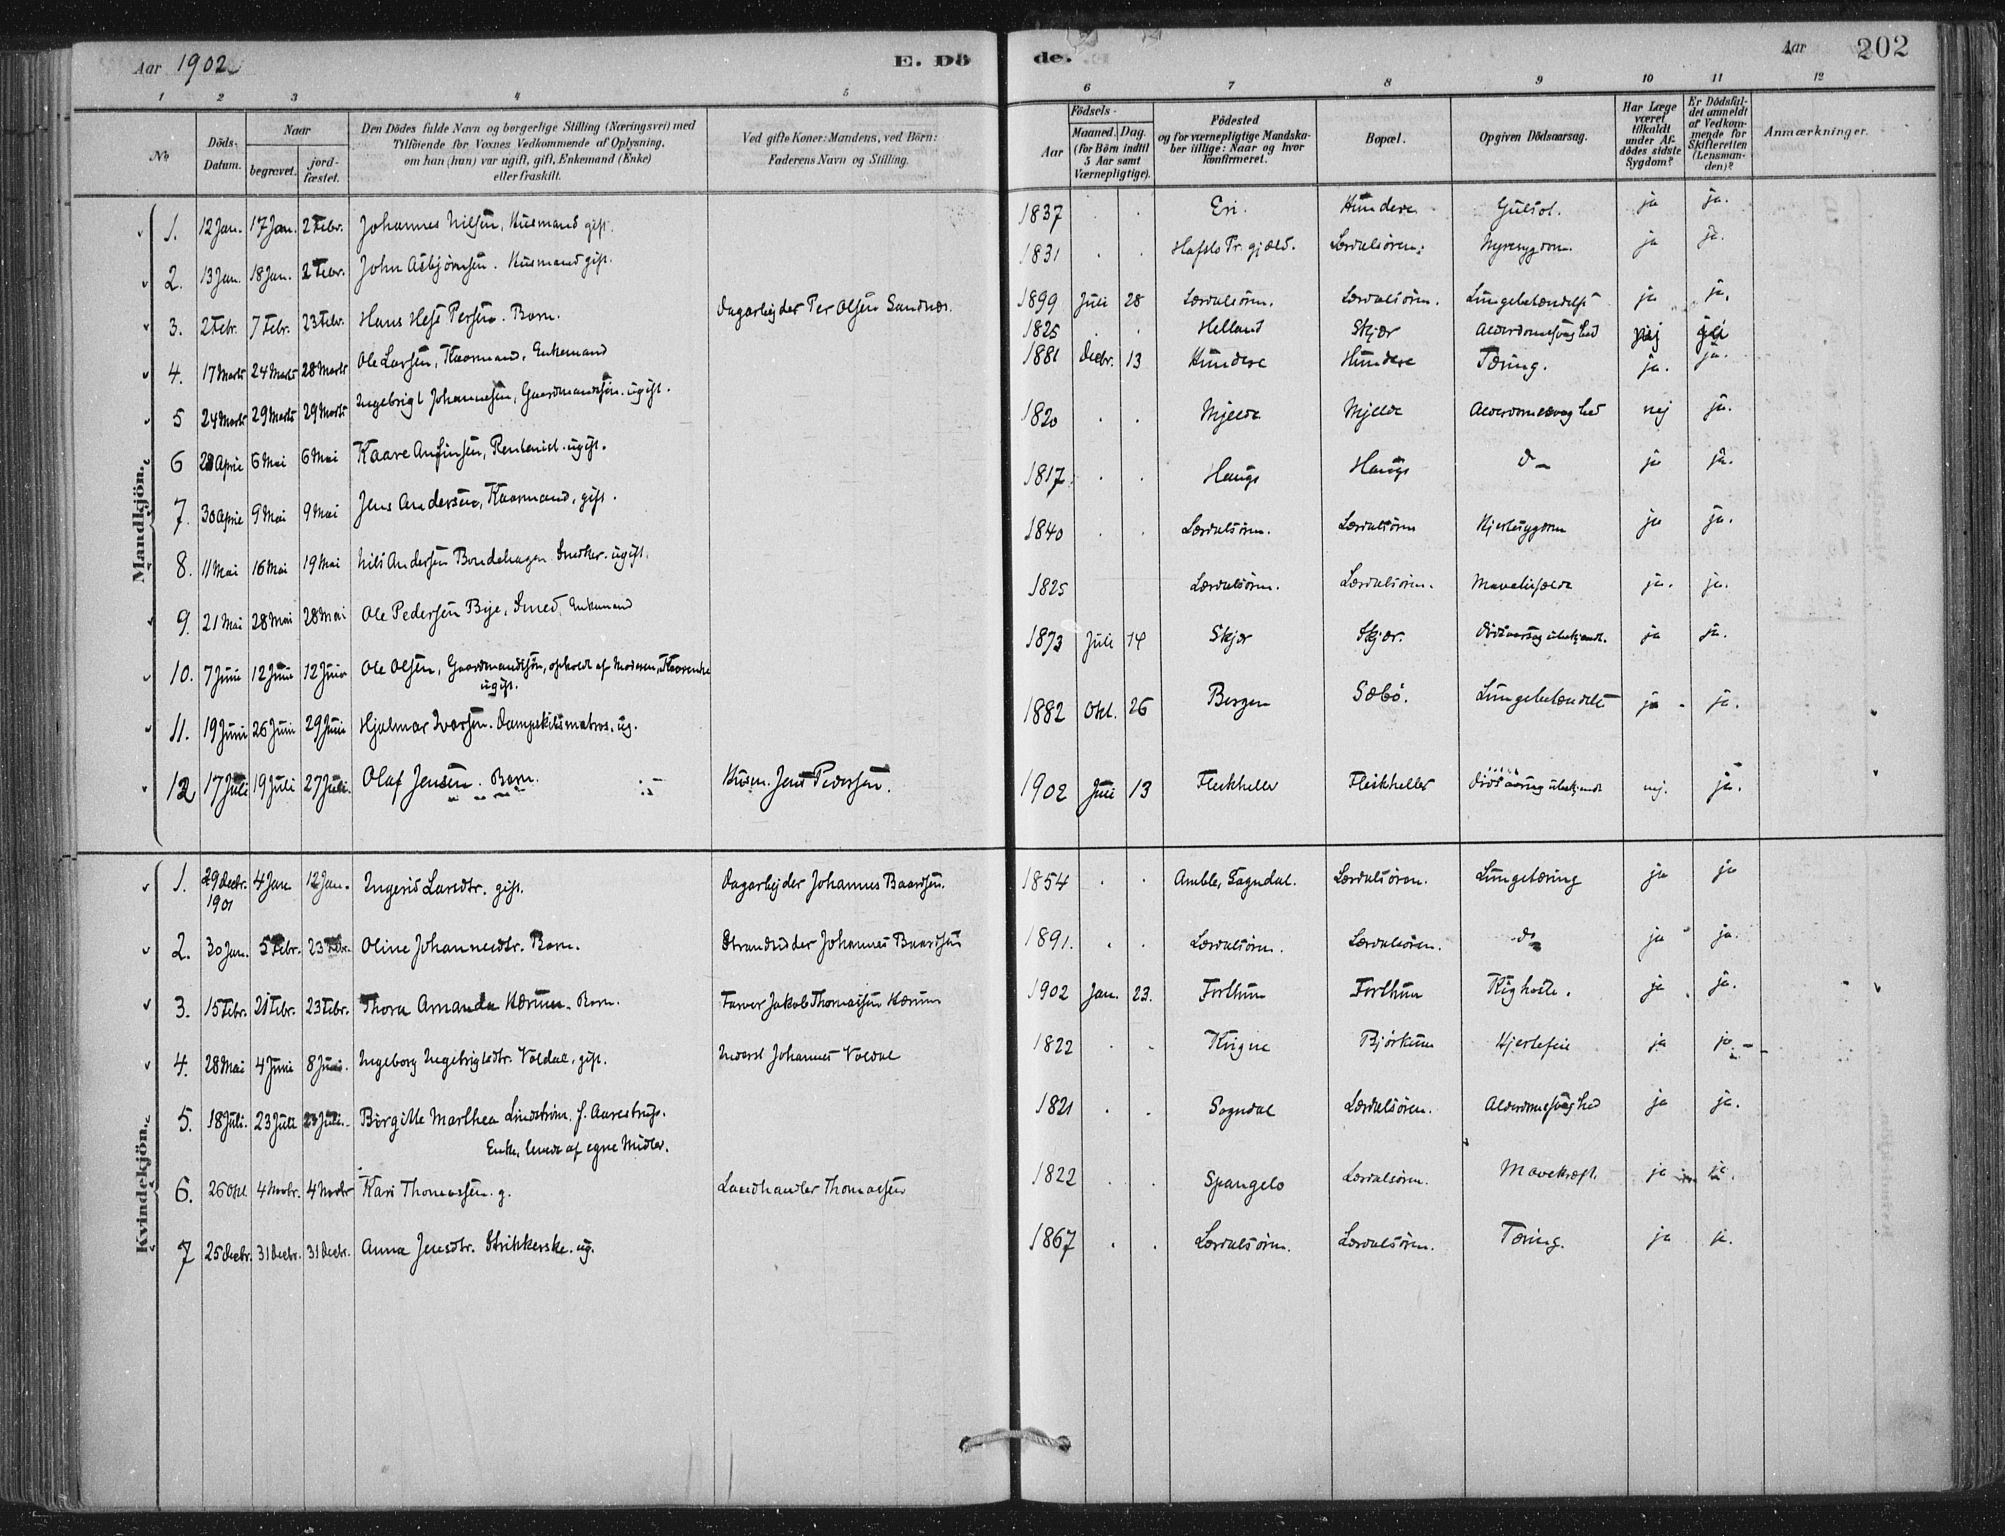 Aar 1902 E. Dö
de. Aar 202
1 2 3 4 5 6 7 8 9 10 11 12
No Döds-Datum. Naar begravet. jordfæstet. Den Dödes fulde Navn og borgerlige Stilling (Næringsvei) med Tilföiende for Voxnes Vedkommende af Oplysning, om han (hun) var ugift, gift, Enkemand (Enke) eller fraskilt. Ved gifte Koner: Mandens, ved Börn: Faderens Navn og Stilling. Födsels- Aar Maaned. Dag. (for Börn indtil 5 Aar samt Værnepligtige). Födested og for værnepligtige Mandskaber tillige: Naar og hvor konfirmeret. Bopæl. Opgiven Dödsaarsag. Har Læge været tilkaldt under Afdödes sidste Sygdom? Er Dödsfaldet anmeldt af Vedkommende for Skifteretten (Lensmanden)? Anmærkninger.
Mandkjön.
1. 12 Jan. 17 Jan. 2 Febr. Johannes Nilsen, Husmand gift. 1837 . . Eri. Hundere Gulsot. ja ja.
2. 13 Jan. 18 Jan. 2 Febr. John Asbjörnsen. Husmand gift. 1831 . . Hafslo Pr.gjæld. Lærdalsören. Nyresygdom. ja ja.
3. 2 Febr. 7 Febr. 23 Febr. Hans Persen. Barn. Dagarbejder Per Olsen Sandnes. 1899 Juli 28 Lærdalsören. Lærdalsören. Lungebetændelse ja ja.
4. 17 Marts 24 Marts 28 Marts Ole Larsen, Kaarmand, Enkemand 1825 . . Helland Skjær Alderdomssvaghed nej ja
5 24 Marts 29 Marts 29 Marts Ingebrigt Johannesen, Gaardmandssön. ugift. 1881 Decbr. 13 Hundere Hundere Tæring. ja. ja.
6 28 April 6 Mai 6 Mai Kaare Anfinsen, ugift. 1820 . . Mjelde Mjelde Alderdomssvaghed nej ja.
7. 30 April 9 Mai 9 Mai Jens Andersen, Kaarmand, gift. 1817 . . Haugs Haugs do ja ja.
8. 11 Mai 16 Mai 19 Mai Nils Andersen Bondehagen Snedker. ugift. 1840 . . Lærdalsören. Lærdalsören Hjertesygdom ja ja.
9. 21 Mai 28 Mai 28 Mai Ole Pedersen Bye, Smed, Enkemand 1825 Lærdalsören. Lærdalsören. ja. ja.
10. 7 Juni 12 Juni 12 Juni Ole Olsen, Gaardmandssön, opholdt af Moderen, Kaarenke
ugift. 1873 Juli 14 Skjær Skjær. Dödsaarsag ubekjendt. ja ja.
11. 19 Juni 26 Juni 29 Juni Hjalmar Ivarsen. Dampskibsmatros. ug. 1882 Okt. 26 Bergen Sæbö. Lungebetændelse ja ja.
12 17 Juli 19 Juli 27 Juli. Olaf Jensen. Barn. Husm. Jens Pedersen. 1902 Juli 13 Fleskheller Fleskheller Dödsaarsag ubekjendt nej. ja.
Kvindekjön.
1. 29 Decbr. 1901 4 Jan 12 Jan. Ingerid Larsdtr. gift. Dagarbejder Johannes Baardsen. 1854 . . Amble, Sogndal. Lærdalsören. Lungetæring ja ja
2. 30 Jan. 5 Febr. 23 Febr. Oline Johannesdtr. Barn. Strandsidder Johannes Baardsen 1891. . . Lærdalsören. Lærdalsören. do ja ja.
3. 15 Febr. 21 Febr. 23 Febr. Thora Amanda Hærum. Barn. Farver Jakob Thomassen Hærum 1902 Jan. 23. Forthun Forthun Kighoste. ja ja.
4. 28 Mai 4 Juni 8 Juni. Ingeborg Ingebrigtsdtr. Voldal, gift. Inderst Johannes Voldal 1822 . . Bjørkum Hjertefeil ja ja.
5. 18 Juli. 23 Juli 23 Juli. Birgitte Marthea Lindström. f. Aarestrup.
Enke, levede af egne Midler. 1821 . . Sogndal Lærdalsören. Alderdomssvaghed ja ja.
6. 26 Okt 4 Novbr. 4 Novbr Kari Thomassen. g. Landhandler Thomassen 1822 . . Spangelo Lærdalsören. Mavekræft. ja ja.
7 25 Decbr. 31 Decbr. 31 Decbr. Anna Jensdtr. Strikkerske. ug. 1867 . . Lærdalsören. Lærdalsören. Tæring. ja ja.